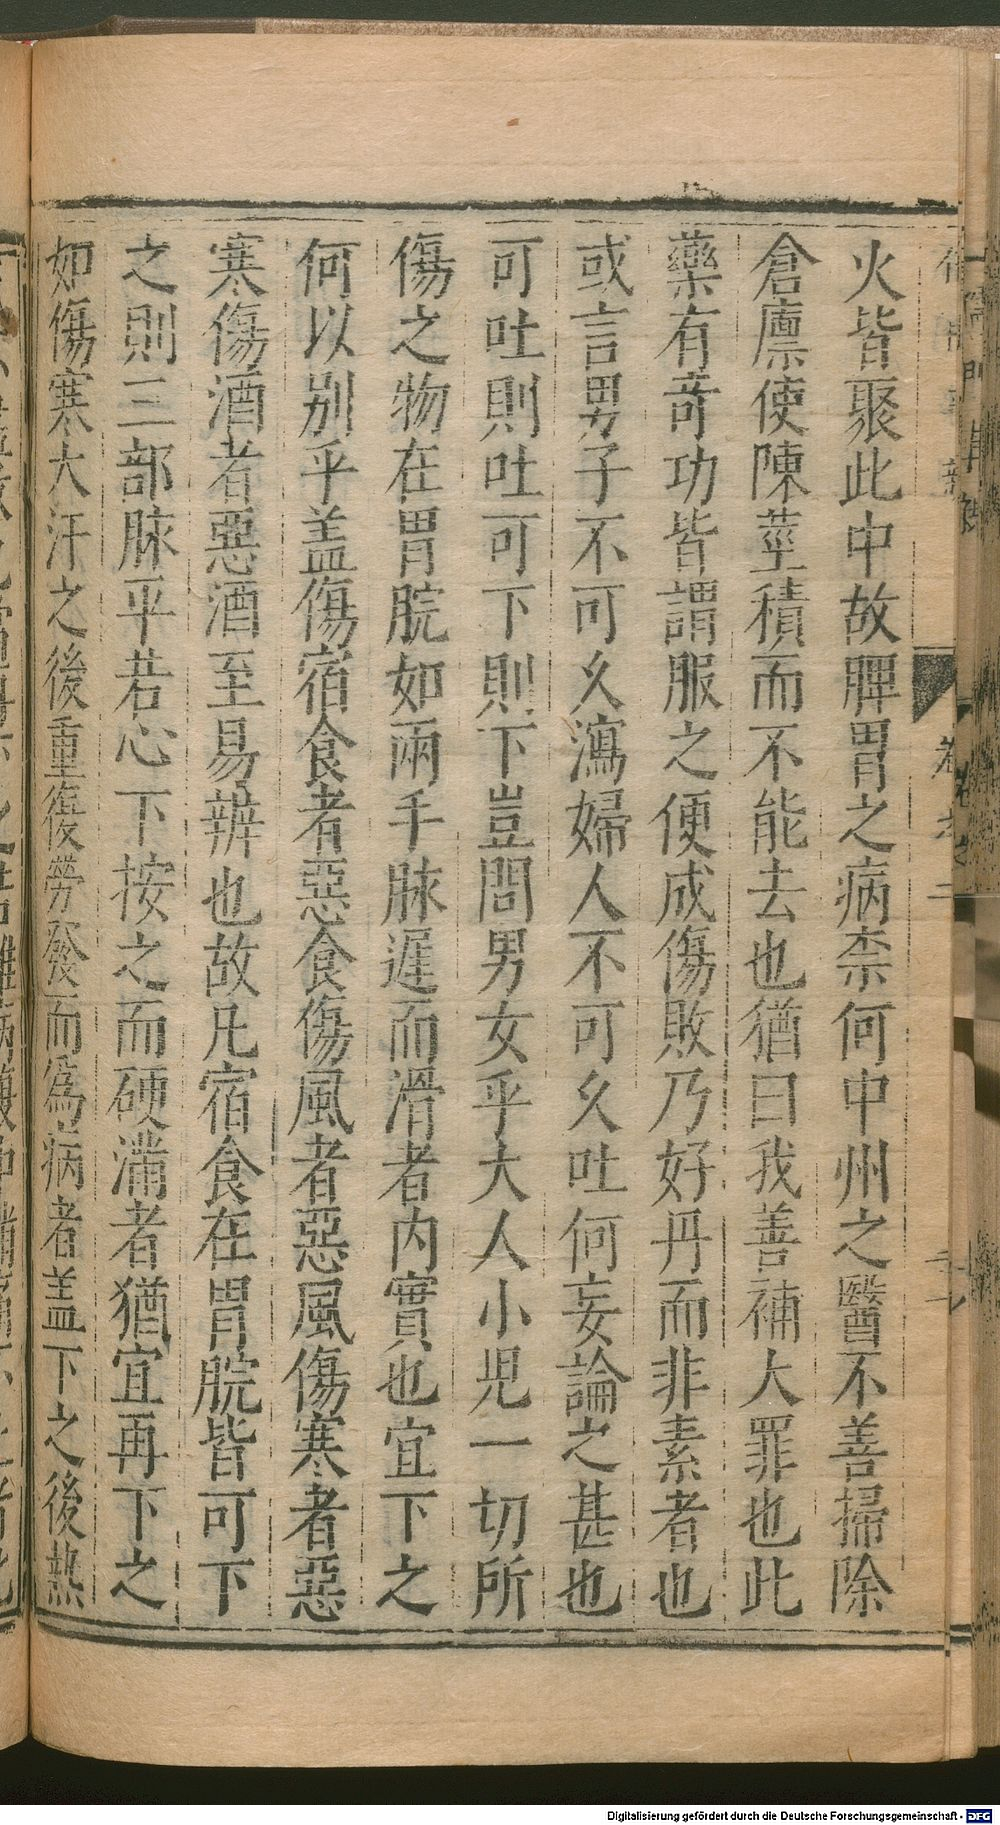 火皆聚此中故脾胃之病柰何中州之醫不善掃除
倉廩使陳莝積而不能去也猶曰我善補大罪也此
藥有竒功皆謂服之便成傷敗乃好丹而非素者也
或言男子不可久瀉婦人不可久吐何妄論之甚也
可吐則吐可下則下豈問男女乎大人小児一切所
傷之物在胃脘如兩手脉遲而滑者内實也宜下之
何以别乎盖傷宿食者惡食傷風者惡風傷寒者惡
寒傷酒者惡酒至易辨也故凡宿食在胃脘皆可下
之則三部脉平若心下按之而硬滿者猶宜再下之
如傷寒大汗之後重復勞發而爲病者盖下之後熱
Digitalisierung gefördert durch die Deutsche Forschungsgemeinschaft - DFG